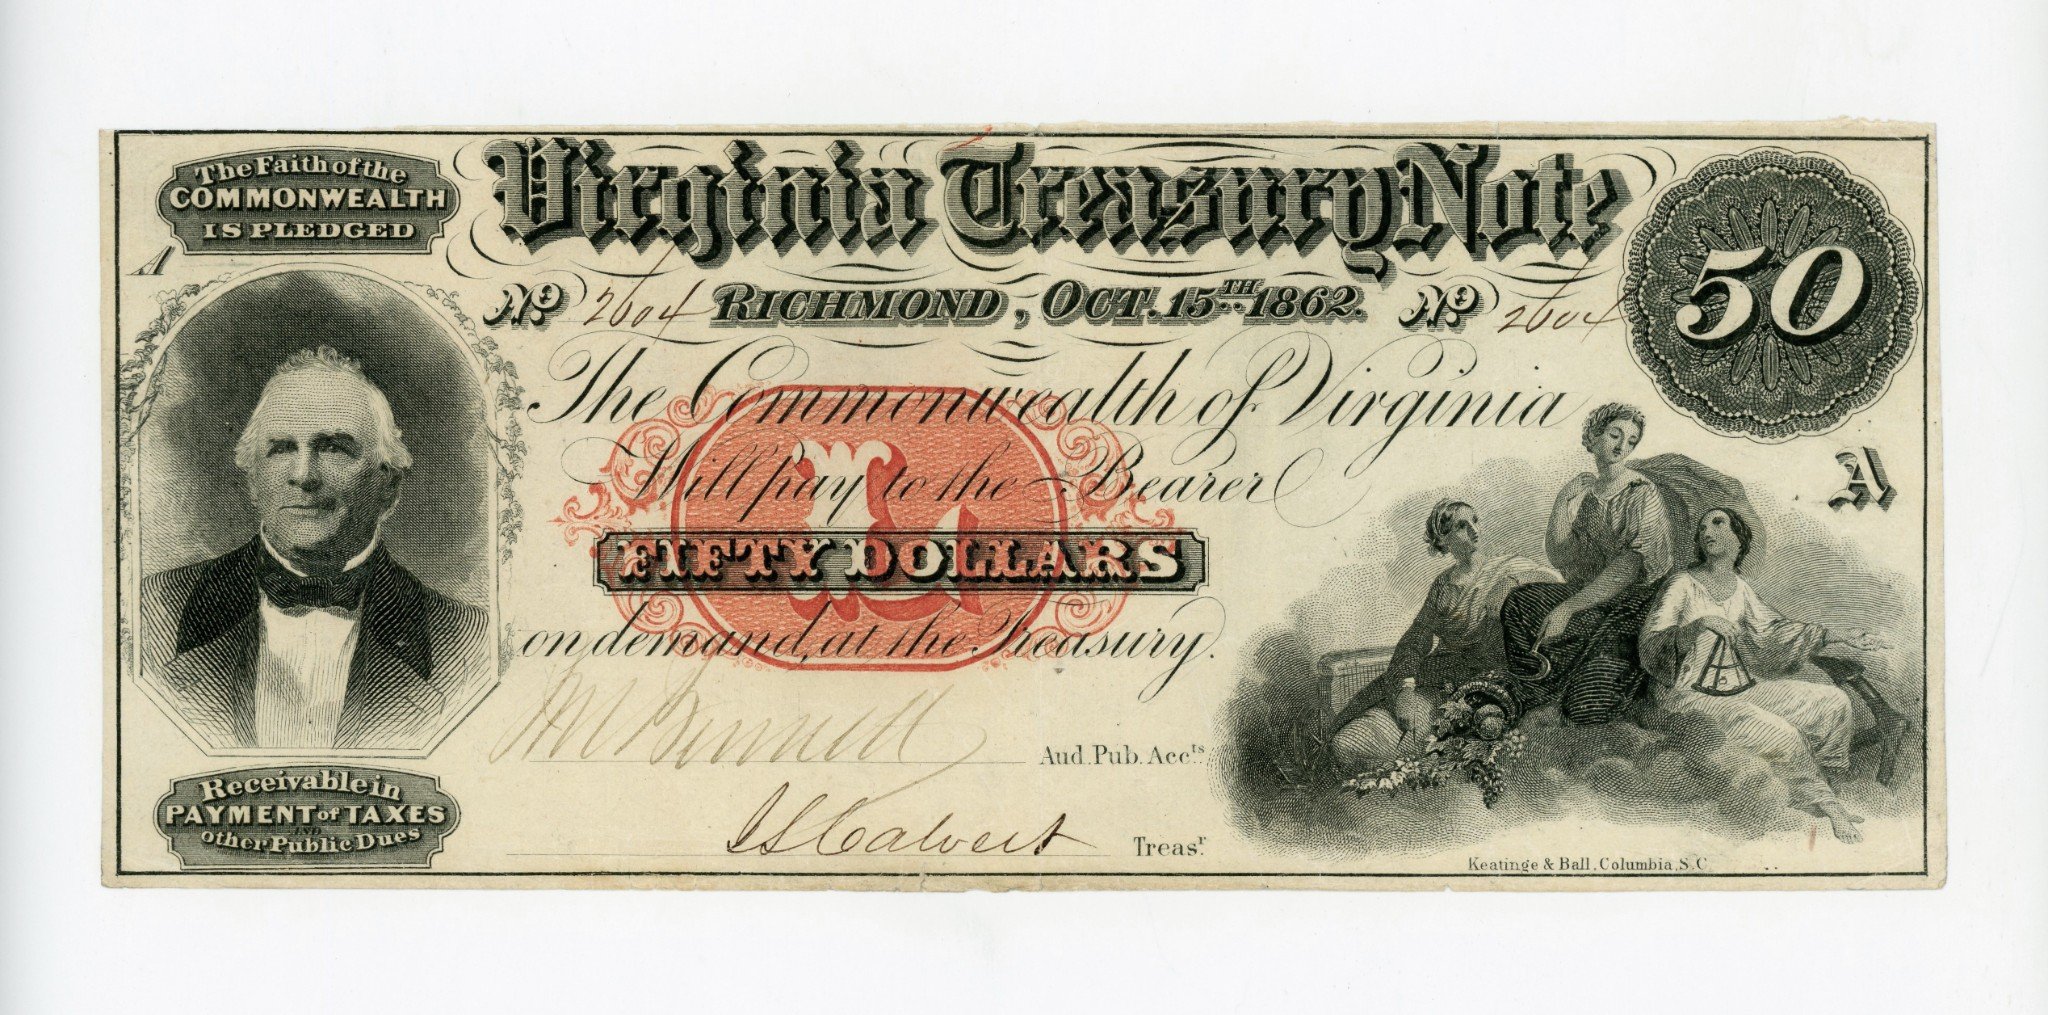 The Faith of the
COMMONWEALTH
IS PLEDGED
Virginia Treasury Note
50
A
No. 2604 RICHMOND, OCT. 15TH 1862. No. 2604
The Commonwealth of Virginia
Will pay to the Bearer
L
A
FIFTY DOLLARS
on demand, at the Treasury.
J M Bennett Aud. Pub. Accts.
J S Calvert Treasr.
Receivable in
PAYMENT of TAXES
AND
other Public Dues
Keatinge & Ball, Columbia, S.C.